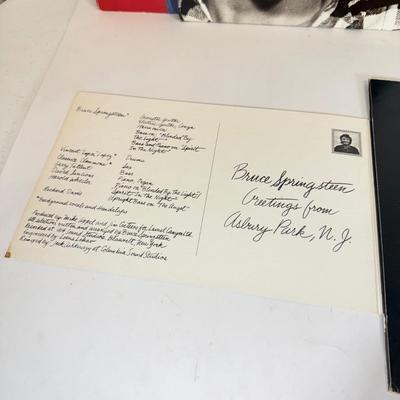 Bruce Springsteen*
Acoustic guitar
Electric Guitar, Congas
Harmonica
Bass on "Blinded By
The Light"
Bass and Piano on "Spirit
In The Night"
Vincent "Loper" Lopez* Drums
Clarence Clemmons* Sax
Garry Tallent Bass
David Sancious Piano, Organ
Harold Wheeler Piano on "Blinded By The Light"/
"Spirit In The Night"
Richard Davis Upright Bass on "The Angel"
*background vocals and Handclaps
Produced by Mike Appel and Jim Cretecos for Laurel Canyon Ltd.
All selections written and arranged by Bruce Springsteen
Recorded at 914 Sound Studios, Blauvelt, New York
Engineered by Louis Lahav
Remixed by Jack Ashkinazy at Columbia Sound Studios
Bruce Springsteen
Greetings from
Asbury Park, N. J.